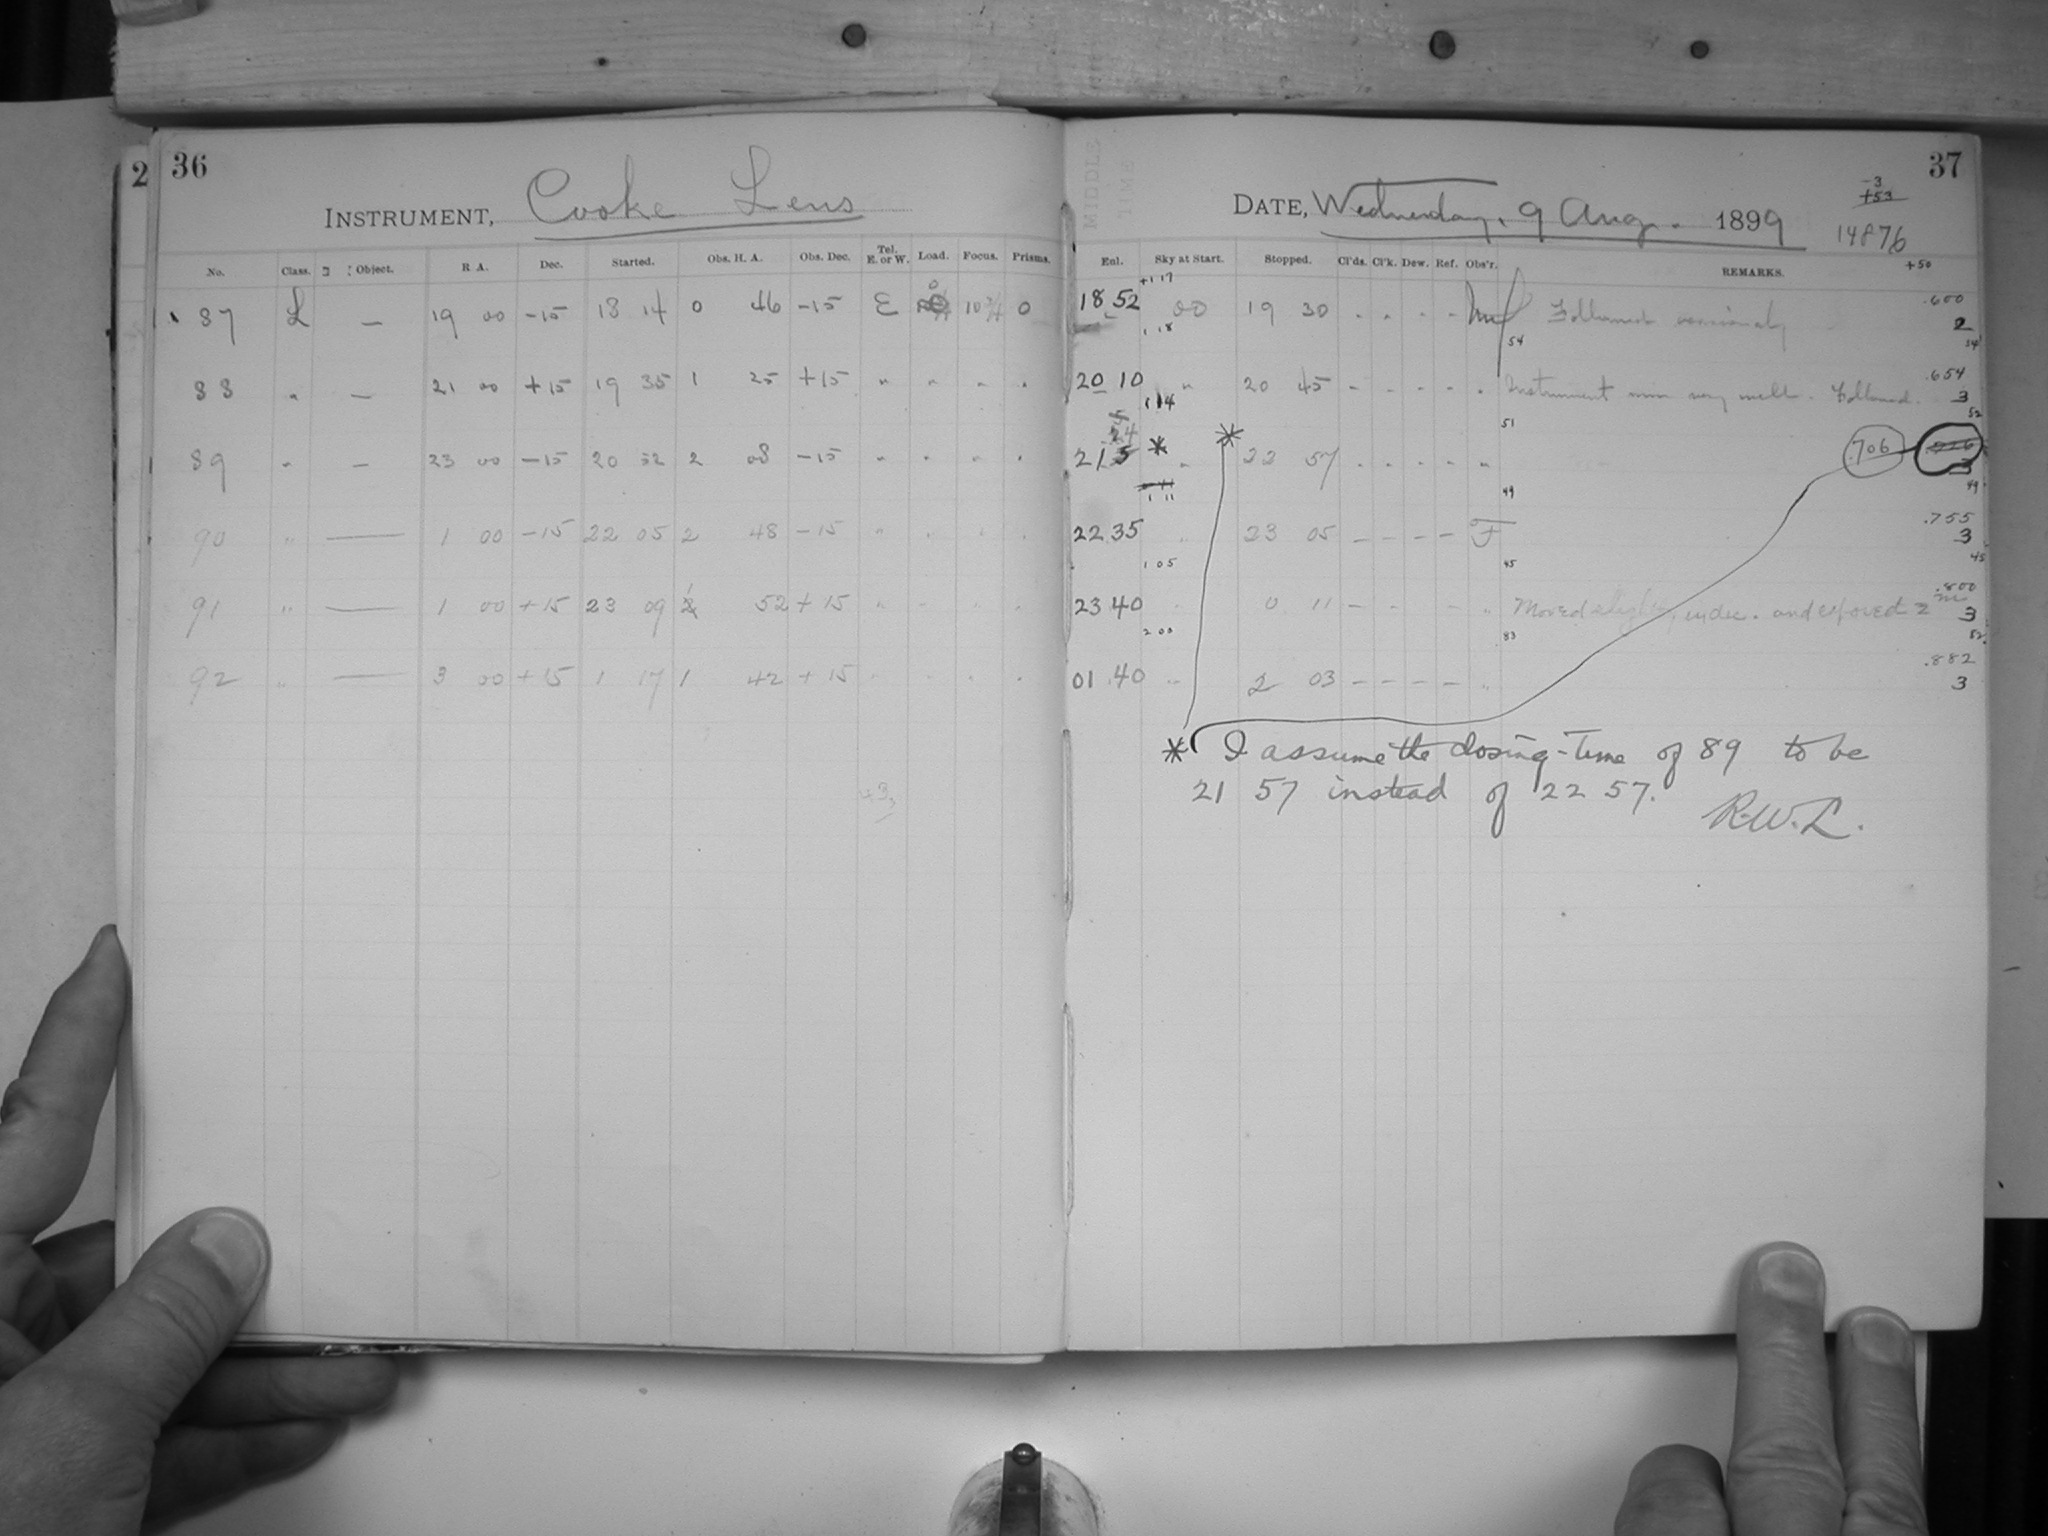 2
36
INSTRUMENT, Cooke Lens
No. Class. Object. R A. Dec. Started. Obs. H. A. Obs. Dec. Tel. E. or W. Load. Focus. Prisms.
87 L — 19 00 -15 18 14 0 46 -15 E 10 3/4 0
88 " — 21 00 +15 19 35 1 25 +15 " " " "
89 " — 23 00 -15 20 52 2 08 -15 " " " "
90 " — 1 00 -15 22 05 2 48 -15 " " " "
91 " — 1 00 +15 23 09 1 52 +15 " " " "
92 " — 3 00 +15 1 17 1 42 +15 " " " "
MIDDLE
TIME
37
DATE, Wednesday, 9 Aug. 1899
-3
+53
14876
+50
Enl. Sky at Start. Stopped. Cl'ds. Cl'k. Dew. Ref. Obs'r. REMARKS.
+1 17
18 52 00 19 30 - - - - .600
2
1 18 54 54
20 10 " 20 45 - - - - " Instrument run very well. Followed. .654
3
1 14 51 52
24
21 5 * " * 22 57 - - - - " 706
3
1 11 49 49
22 35 " 23 05 - - - - F .755
3
1 05 45 45
23 40 " 0 11 - - - " Moved slightly in dec. and exposed 2 m .800
3
2 00 83 82
01 40 " 2 03 - - - - " .882
3
* I assume the closing-time of 89 to be
21 57 instead of 22 57.
R.W.L.